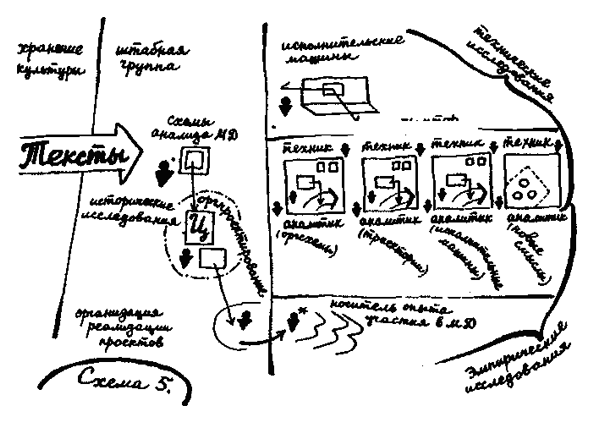 хранение
культуры
штабная
группа
исполнительские
машины
технические
исследования
схемы
анализа МД
Тексты
техник
техник
техник
техник
исторические
исследования
Ц
оргпроектирование
аналитик
(оргсхемы)
аналитик
(траектории)
аналитик
(исполнительные
машины)
аналитик
(новые
смыслы)
организация
реализации
проектов
*
носитель опыта
участия в МД
Эмпирические
исследования
Схема 5.